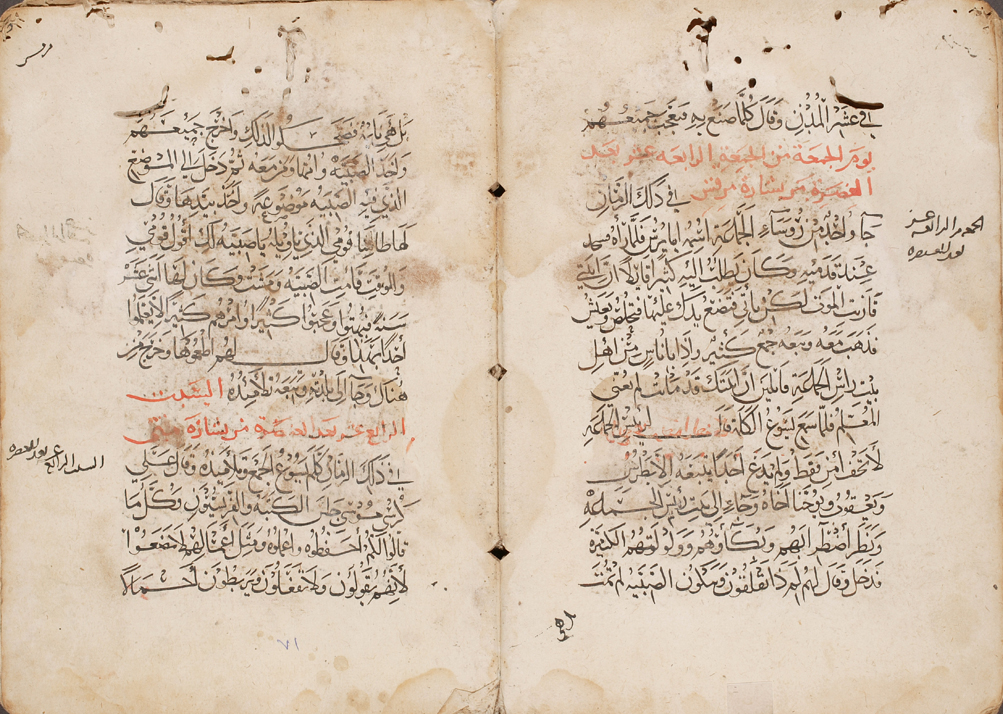 في عشر المدن وقال كلما صنع به فتعجب جميعهم
يوم الجمعة من الجمعه الرابعه عشر بعد
العنصره من بشارة مرقس في ذلك الزمان
جآء واحد من رؤسآء الجماعة اسمه ايايرس فلما راه سجد
عند قدميه وكان يطلب اليه كثيرا قايلا ان ابنتي
قاربت الموت لكن تاتي فتضع يدك عليها فتخلص وتعيش
فذهب معه وتبعه جمع كثير واذا باناس من اهل
بيت رايس الجماعة قايلين ان ابنتك قد ماتت لم تعني
المعلم فلما سمع ليسوع الكلمة قال لرييس الجماعة
لا تخف امن فقط ولم يدع احدا يتبعه الا بطرس
ويعقوب ويوحنا اخاه وجاء الى بيت رايس الجماعة
ونظر اضطرابهم وبكاؤهم وولولتهم الكثيرة
فدخل وقال لهم لم ذا تقلقون وتبكون الصبيه لم تمت
بل هي
الجمعه الرابعه عشر
بعد العنصره
بل هي نايمة فضحكوا لذلك واخرج جميعهم
واخذ ابا الصبيه وامها ومن معه ثم دخل الي الموضع
الذي فيه الصبيه موضوعة واخذ بيدها وقال
لها طابيثا قومي الذي تاويله يا صبيه لك اقول قومي
وللوقت قامت الصبيه ومشت وكان لها اثني عشر
سنة فبهتوا وعجبوا كثيرا وامرهم كثيرا الا يعلموا
احدا بهذا وقال لهم اطعموها وخرج من
هناك وجآ الى مدينته وتبعه تلاميذه السبت
الرابع عشر بعد العنصرة من بشارة متي
في ذلك الزمان كلم يسوع الجمع وتلاميذه وقال علي
كرسي موسي جلس الكتبه والفريسيون وكل ما
قالوا لكم احفظوه واعملوه ومثل اعمالهم لا تصنعوا
لانهم يقولون ولا يفعلون ويربطون احمالا
السبت الرابع عشر بعد العنصره
٧١